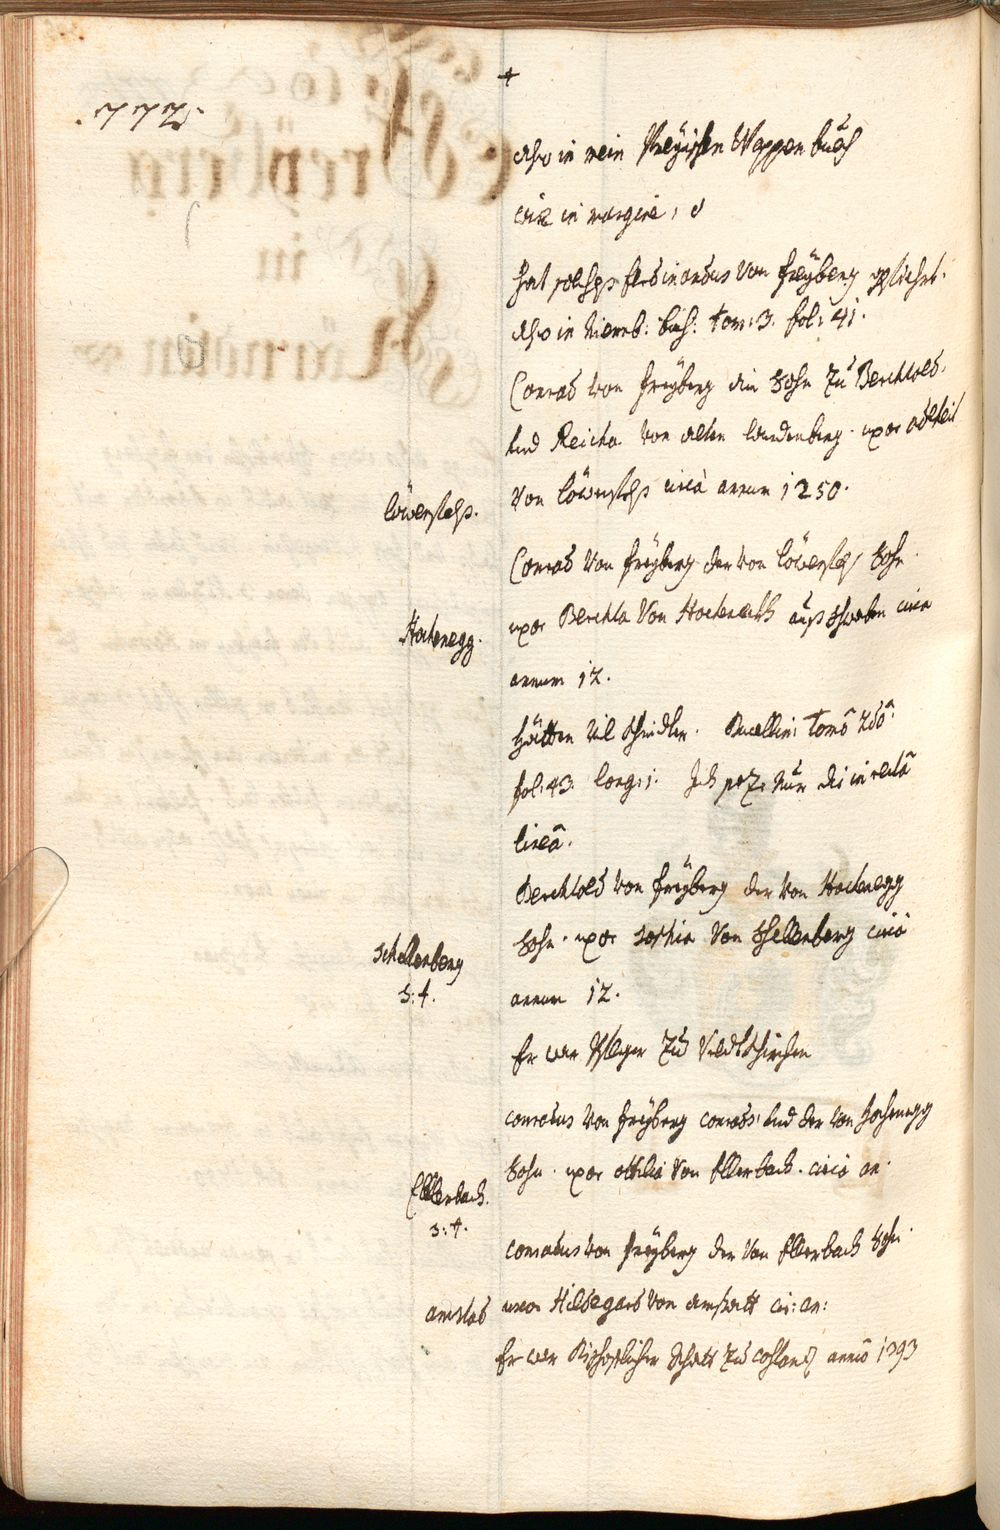 772.
+
also in mein Freyissen Wappen buch
wie in margine, d
hat solches ferdinandus von freyberg gefiehrt.
also in Niernb: buch: tom: 3. fol: 41.
Conrad von freyberg ein Sohn zu Berchtold,
und Reicha von alten landenberg. uxor adelheit
von löwenfels circà annum 1250.
löwenfels.
Conrad von freyberg der von löwenfels Sohn.
uxor Berchta von Hochenekh auss schwaben circa
annum 12.
Hochenegg.
hätten vil khindter. Bucellini tomô 2dô:
fol: 43. Ich nur die in rectâ
lineâ.
Berchtold von freyberg der von Hochenegg
Sohn. uxor sophia von schellenberg circà
annum 12.
schellenberg
s: f.
Er war Pfleger zu Veldtkhirchen
conradus von freyberg conrads, und der von hochenegg
Sohn. uxor ottilia von Ellerbach. circà an.
Ellerbach.
s: f.
conradus von freyberg der von Ellerbach Sohn.
uxor Hildegard von amstatt cir: an:
amstad
Er war Bischofflicher Rhatt zu costanz annô 1393